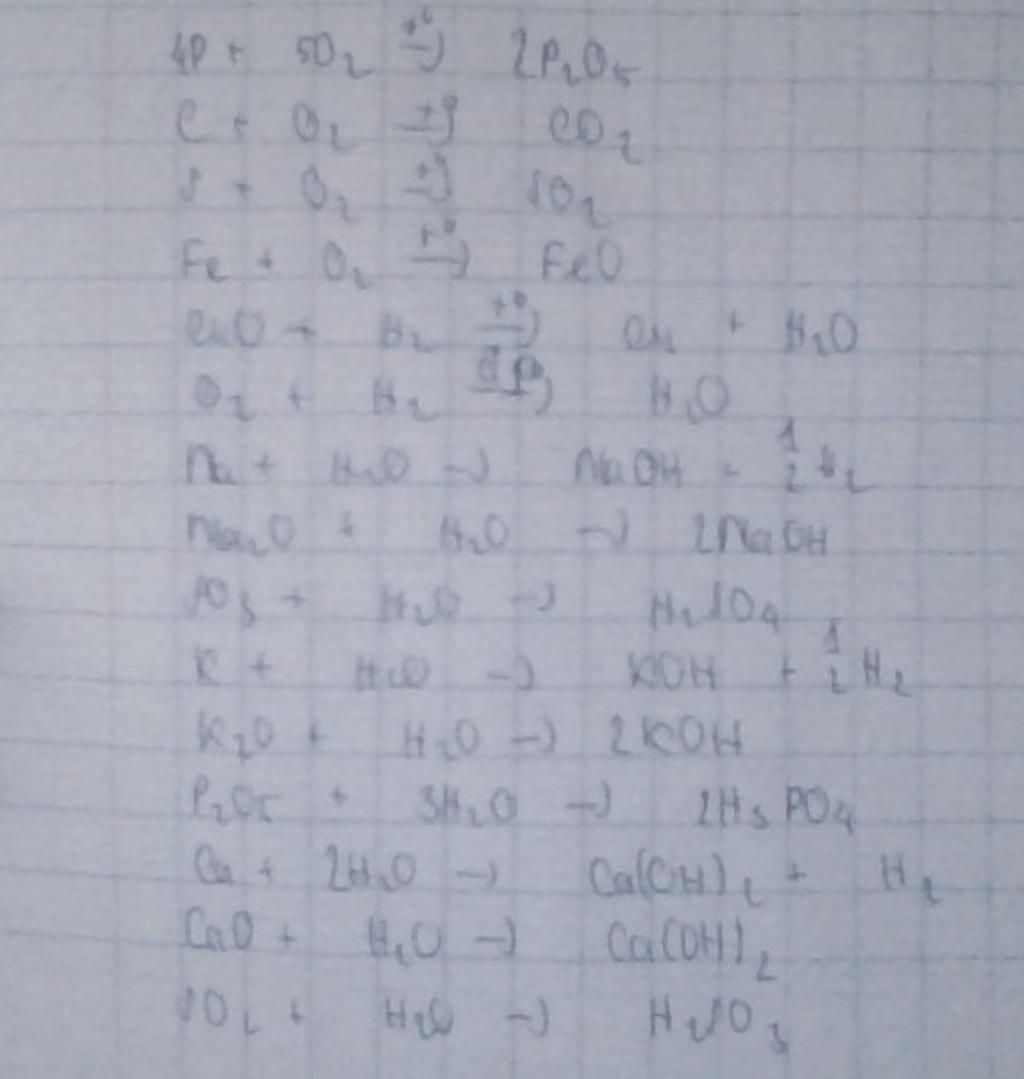 4P + 5O₂ t° → 2P₂O₅
C + O₂ t° → CO₂
S + O₂ t° → SO₂
Fe + O₂ t° → FeO
CuO + H₂ t° → Cu + H₂O
O₂ + H₂ → H₂O
Na + H₂O → NaOH + 1/2 H₂
Na₂O + H₂O → 2NaOH
SO₃ + H₂O → H₂SO₄
K + H₂O → KOH + 1/2 H₂
K₂O + H₂O → 2KOH
P₂O₅ + 3H₂O → 2H₃PO₄
Ca + 2H₂O → Ca(OH)₂ + H₂
CaO + H₂O → Ca(OH)₂
SO₂ + H₂O → H₂SO₃